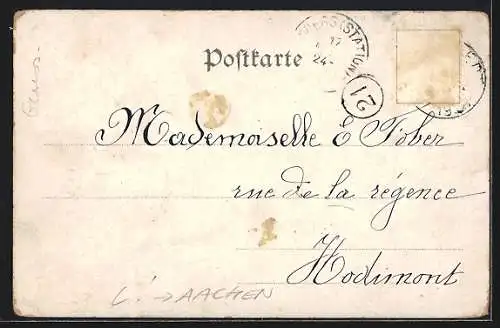 Postkarte
21
24
Mademoiselle E Tober
rue de la régence
Hodimont
L! → AACHEN